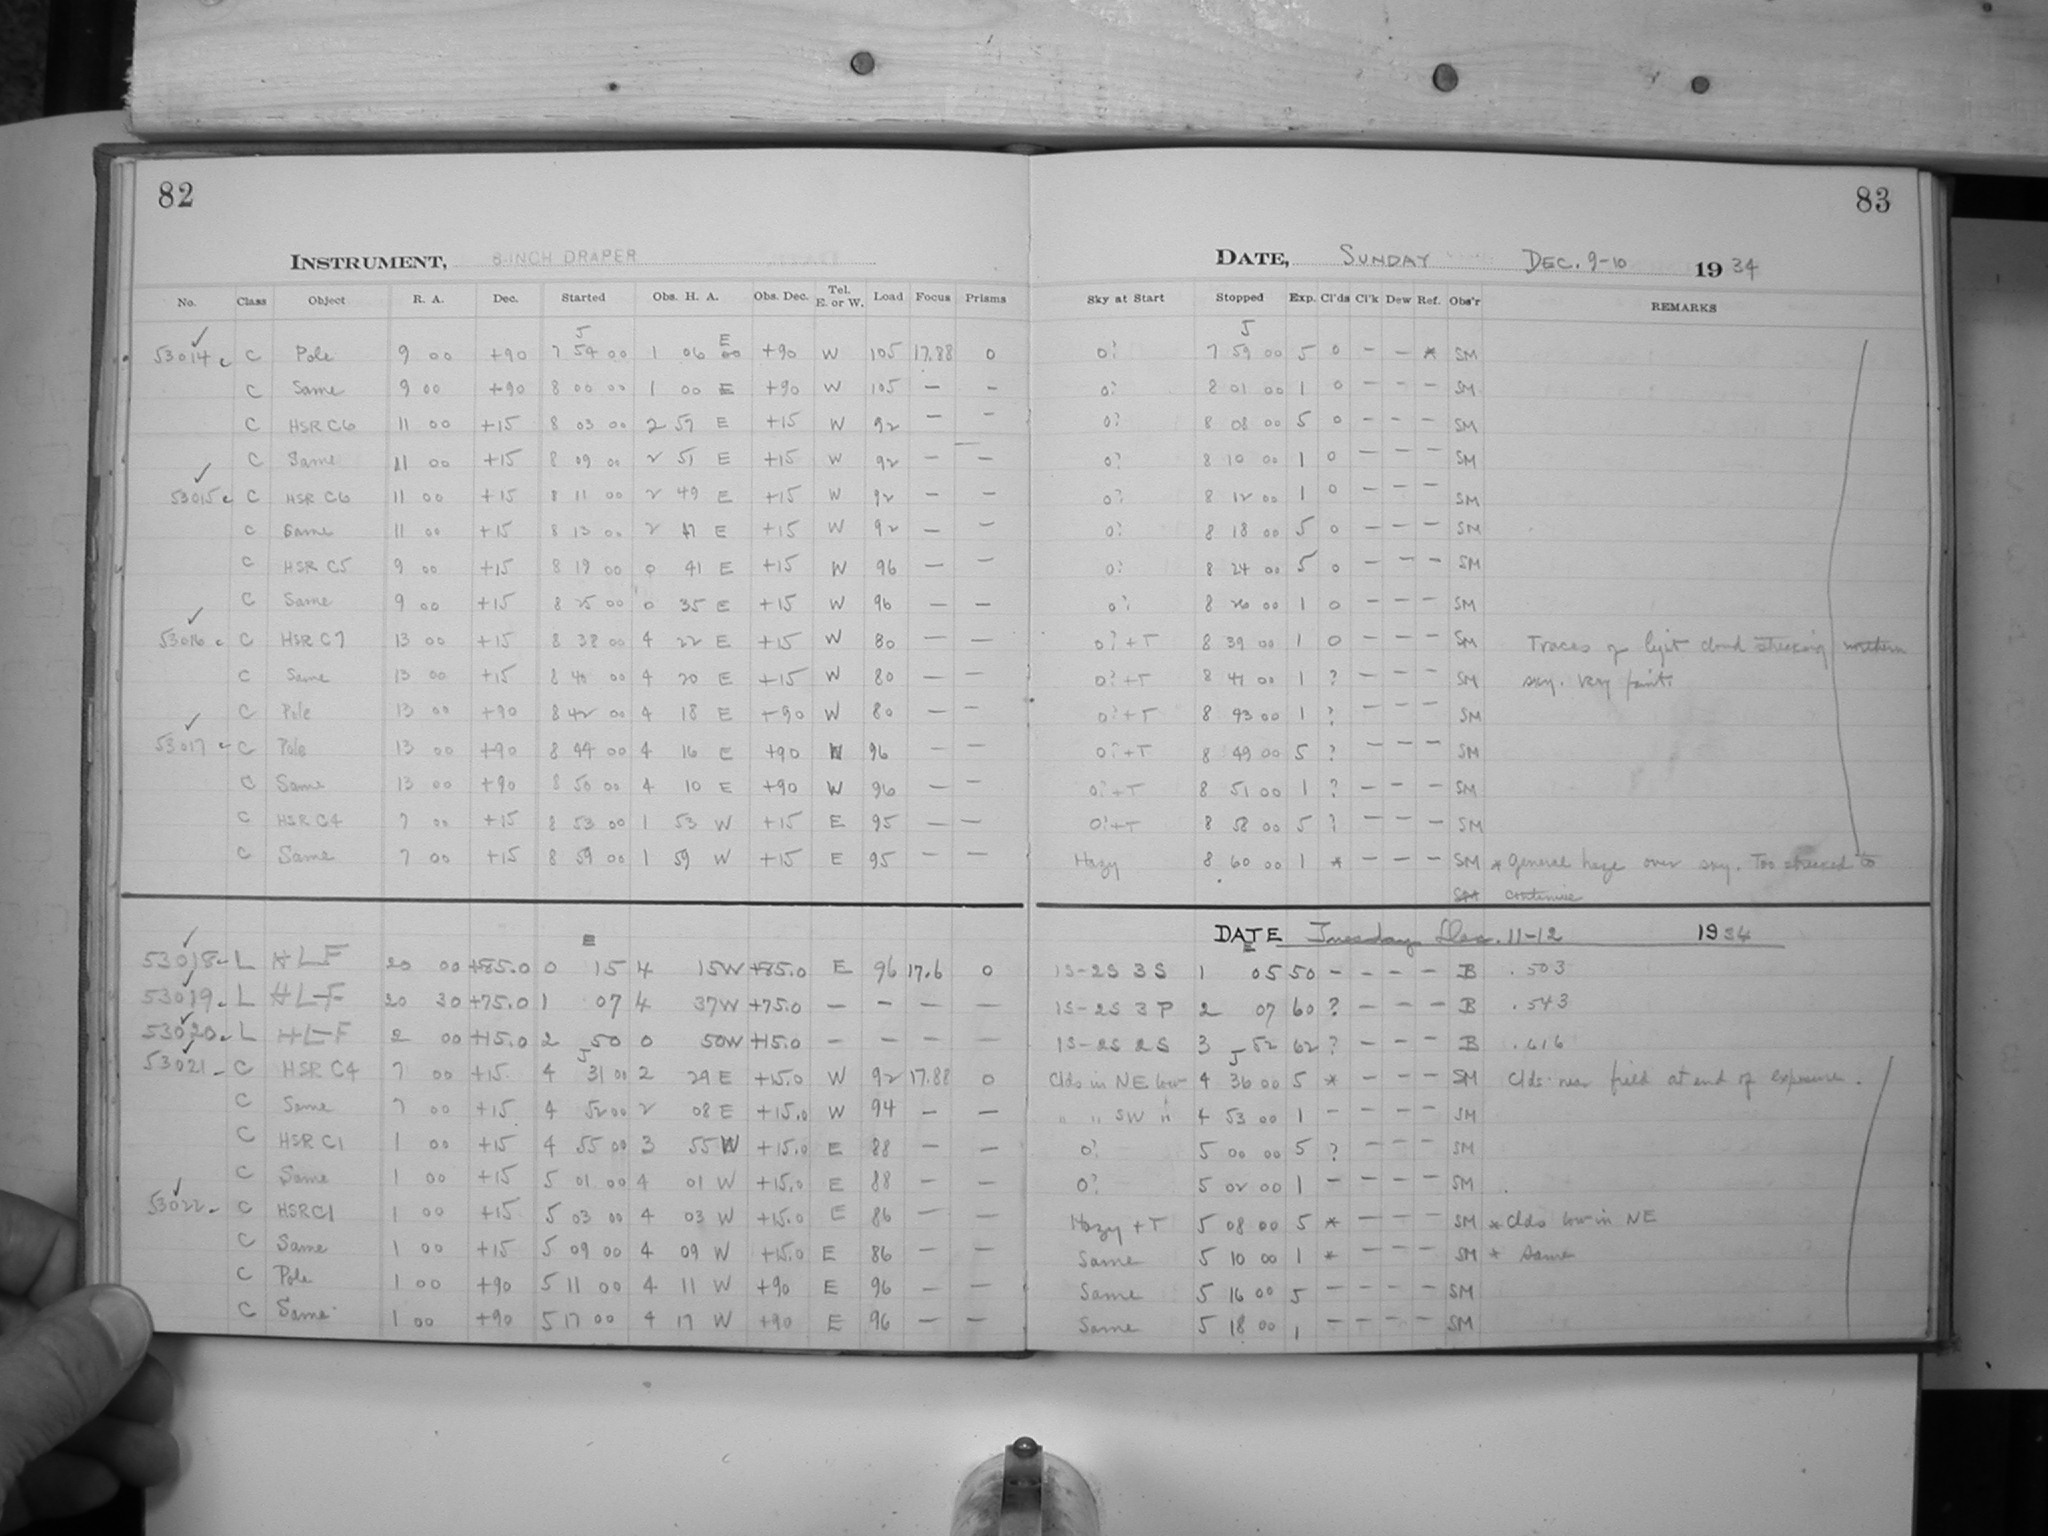 82
83
INSTRUMENT, 8-INCH DRAPER
DATE, SUNDAY DEC. 9-10 1934
No. Class Object R. A. Dec. Started Obs. H. A. Obs. Dec. Tel. E. or W. Load Focus Prisms Sky at Start Stopped Exp. Cl'ds Cl'k Dew Ref. Obs'r REMARKS
J E J
53014 C Pole 9 00 +90 7 54 00 1 06 +90 W 105 17.88 0 0? 7 59 00 5 0 - - * SM
C Same 9 00 +90 8 00 00 1 00 E +90 W 105 - - 0? 8 01 00 1 0 - - - SM
C HSR C6 11 00 +15 8 03 00 2 57 E +15 W 92 - - 0? 8 08 00 5 0 - - - SM
C Same 11 00 +15 8 09 00 2 51 E +15 W 92 - - 0? 8 10 00 1 0 - - - SM
53015 C HSR C6 11 00 +15 8 11 00 2 49 E +15 W 92 - - 0? 8 12 00 1 0 - - - SM
C Same 11 00 +15 8 13 00 2 47 E +15 W 92 - - 0? 8 18 00 5 0 - - - SM
C HSR C5 9 00 +15 8 19 00 0 41 E +15 W 96 - - 0? 8 24 00 5 0 - - - SM
C Same 9 00 +15 8 25 00 0 35 E +15 W 96 - - 0? 8 26 00 1 0 - - - SM
53016 C HSR C7 13 00 +15 8 38 00 4 22 E +15 W 80 - - 0? + T 8 39 00 1 0 - - - SM Traces of light cloud streaking northern
C Same 13 00 +15 8 40 00 4 20 E +15 W 80 - - 0? + T 8 41 00 1 ? - - - SM sky. Very faint.
C Pole 13 00 +90 8 42 00 4 18 E +90 W 80 - - 0? + T 8 43 00 1 ? - - - SM
53017 C Pole 13 00 +90 8 44 00 4 16 E +90 W 96 - - 0? + T 8 49 00 5 ? - - - SM
C Same 13 00 +90 8 50 00 4 10 E +90 W 96 - - 0? + T 8 51 00 1 ? - - - SM
C HSR C4 7 00 +15 8 53 00 1 53 W +15 E 95 - - 0? + T 8 58 00 5 ? - - - SM
C Same 7 00 +15 8 59 00 1 59 W +15 E 95 - - Hazy 8 60 00 1 * - - - SM * General haze over sky. Too streaked to
SM continue
DATE Tuesday Dec. 11-12 1934
E
53018 L HLF 20 00 +85.0 0 15 4 15W +85.0 E 96 17.6 0 1S-2S 3S 1 05 50 - - - - B .503
53019 L HLF 20 30 +75.0 1 07 4 37W +75.0 - - - - 1S-2S 3P 2 07 60 ? - - - B .543
53020 L HLF 2 00 +15.0 2 50 0 50W +15.0 - - - - 1S-2S 2S 3 52 62 ? - - - B .616
J J
53021 C HSR C4 7 00 +15 4 31 00 2 29 E +15.0 W 92 17.88 0 Clds in NE low 4 36 00 5 * - - - SM Clds near field at end of exposure.
C Same 7 00 +15 4 52 00 2 08 E +15.0 W 94 - - " " SW " 4 53 00 1 - - - - SM
C HSR C1 1 00 +15 4 55 00 3 55 W +15.0 E 88 - - 0? 5 00 00 5 ? - - - SM
C Same 1 00 +15 5 01 00 4 01 W +15.0 E 88 - - 0? 5 02 00 1 - - - - SM
53022 C HSR C1 1 00 +15 5 03 00 4 03 W +15.0 E 86 - - Hazy + T 5 08 00 5 * - - - SM * Clds low in NE
C Same 1 00 +15 5 09 00 4 09 W +15.0 E 86 - - Same 5 10 00 1 * - - - SM * Same
C Pole 1 00 +90 5 11 00 4 11 W +90 E 96 - - Same 5 16 00 5 - - - - SM
C Same 1 00 +90 5 17 00 4 17 W +90 E 96 - - Same 5 18 00 1 - - - - SM